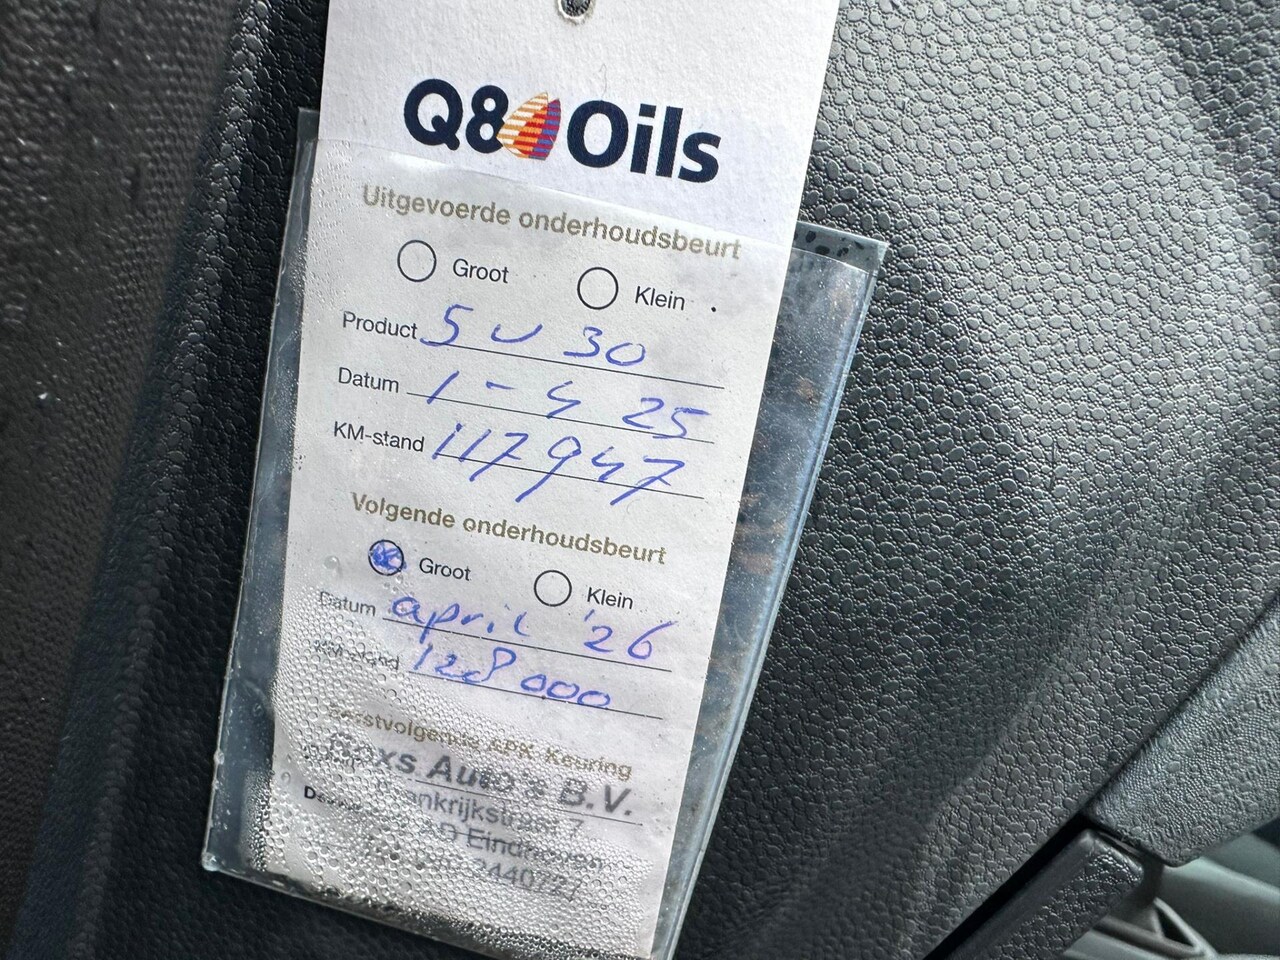 Q8 Oils
Uitgevoerde onderhoudsbeurt
Groot Klein
Product 5 W 30
Datum 1 - 4 25
KM-stand 117947
Volgende onderhoudsbeurt
Groot Klein
Datum april '26
KM-stand 128 000
Eerstvolgende APK Keuring
Auto's B.V.
7
Eindhoven
2440727